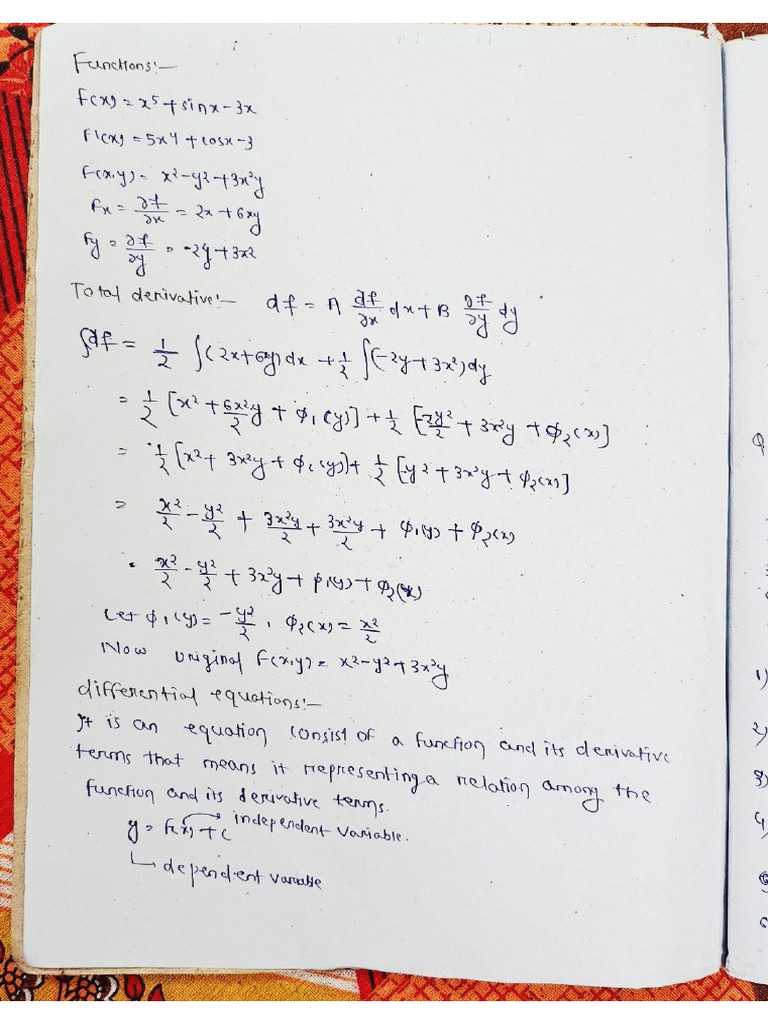 Functions:-
F(x) = x⁵ + sinx - 3x
F'(x) = 5x⁴ + cosx - 3
F(x,y) = x² - y² + 3x²y
Fx = ∂f/∂x = 2x + 6xy
Fy = ∂f/∂y = -2y + 3x²
Total derivative:- df = A ∂f/∂x dx + B ∂f/∂y dy
∫df = 1/2 ∫(2x+6xy)dx + 1/2 ∫(-2y+3x²)dy
= 1/2 [x² + 6x²y/2 + φ₁(y)] + 1/2 [-2y²/2 + 3x²y + φ₂(x)]
= 1/2 [x² + 3x²y + φ₁(y)] + 1/2 [-y² + 3x²y + φ₂(x)]
= x²/2 - y²/2 + 3x²y/2 + 3x²y/2 + φ₁(y) + φ₂(x)
= x²/2 - y²/2 + 3x²y + φ₁(y) + φ₂(x)
Let φ₁(y) = -y²/2 , φ₂(x) = x²/2
Now original F(x,y) = x² - y² + 3x²y
differential equations:-
It is an equation consist of a function and its derivative
terms that means it representing a relation among the
function and its derivative terms.
y = F(x) + c → independent variable.
↳ dependent variable
1)
2)
3)
4)